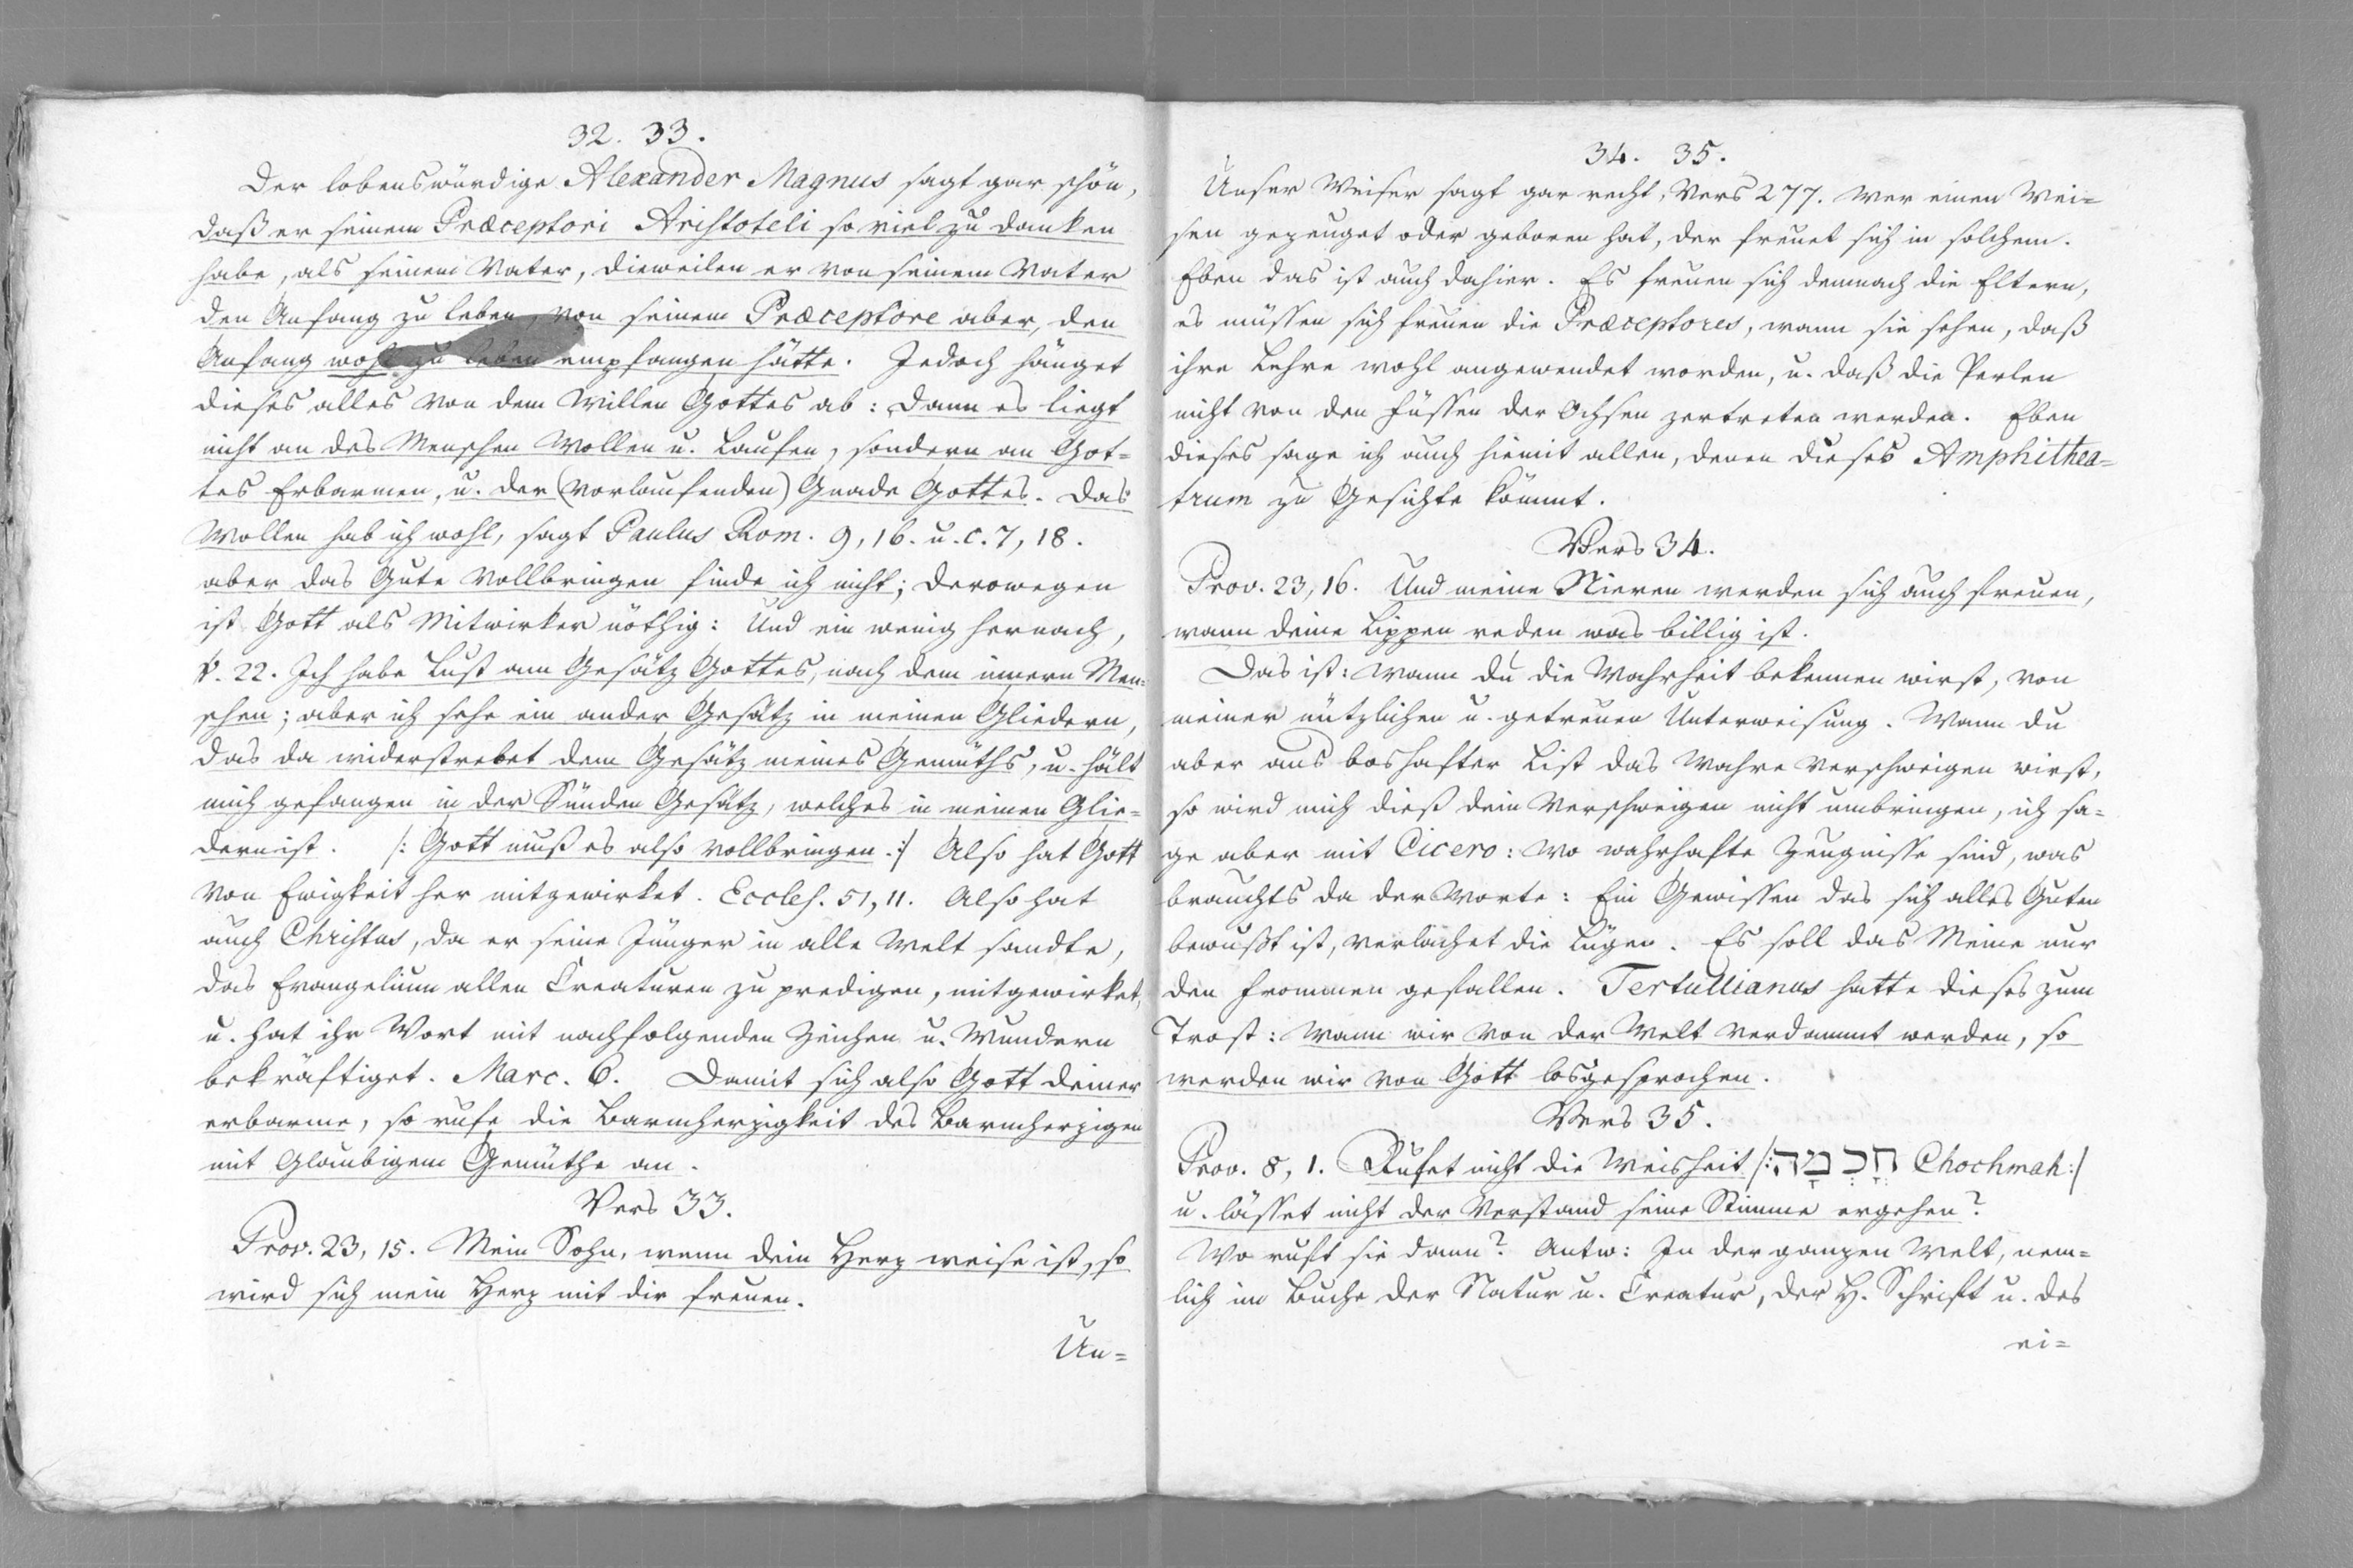 32. 33.
Der lobenswürdige Alexander Magnus sagt gar schön,
daß er seinem Præceptori Aristoteli so viel zu danken
habe, als seinem Vater, dieweilen er von seinem Vater
den Anfang zu leben, von seinem Præceptore aber, den
Anfang wohl zu leben empfangen hätte. Jedoch hänget
dieses alles von dem Willen Gottes ab: Dann es liegt
nicht an des Menschen Wollen u. Laufen, sondern an Got=
tes Erbarmen, u. der (vorlaufenden) Gnade Gottes. Das
Wollen hab ich wohl, sagt Paulus Rom. 9, 16. u. c. 7, 18.
aber das Gute vollbringen finde ich nicht; derowegen
ist Gott als Mitwirker nöthig: Und ein wenig hernach,
v. 22. Ich habe Lust am Gesätz Gottes, nach dem innern Men=
schen; aber ich sehe ein ander Gesätz in meinen Gliedern,
das da widerstrebet dem Gesätz meines Gemüths, u. hält
mich gefangen in der Sünden Gesätz, welches in meinen Glie=
dern ist. /: Gott muß es also vollbringen :/ Also hat Gott
von Ewigkeit her mitgewirket. Eccles. 51, 11. Also hat
auch Christus, da er seine Jünger in alle Welt sandte,
das Evangelium allen Creaturen zu predigen, mitgewirket,
u. hat ihr Wort mit nachfolgenden Zeichen u. Wundern
bekräftiget. Marc. 6. Damit sich also Gott deiner
erbarme, so rufe die Barmherzigkeit des Barmherzigen
mit glaubigem Gemüthe an.
Vers 33.
Prov. 23, 15. Mein Sohn, wenn dein Herz weise ist, so
wird sich mein Herz mit dir freuen.
Un=
34. 35.
Unser Weiser sagt gar recht, Vers 277. Wer einen Wei=
sen gezeuget oder geboren hat, der freuet sich in solchem.
Eben das ist auch dahier. Es freuen sich demnach die Eltern,
es müssen sich freuen die Præceptores, wann sie sehen, daß
ihre Lehre wohl angewendet worden, u. daß die Perlen
nicht von den Füssen der Ochsen zertreten werden. Eben
dieses sage ich auch hiemit allen, denen dieses Amphithea=
trum zu Gesichte kömmt.
Vers 34.
Prov. 23, 16. Und meine Nieren werden sich auch freuen,
wann deine Lippen reden was billig ist.
Das ist: wann du die Wahrheit bekennen wirst, von
meiner nützlichen u. getreuen Unterweisung. Wann du
aber aus boshafter List das Wahre verschweigen wirst,
so wird mich dieß dein Verschweigen nicht umbringen, ich sa=
ge aber mit Cicero: Wo wahrhafte Zeugnisse sind, was
brauchts da der Worte: Ein Gewissen das sich alles Guten
bewußt ist, verlachet die Lügen. Es soll das Meine nur
den Frommen gefallen. Tertullianus hatte dieses zum
Trost: Wann wir von der Welt verdammt werden, so
werden wir von Gott losgesprochen.
Vers 35.
Prov. 8, 1. Rufet nicht die Weisheit /: חָכְמָה Chochmah :/
u. lässet nicht der Verstand seine Stimme ergehen?
Wo ruft sie dann? Antw: In der ganzen Welt, nem=
lich im Buche der Natur u. Creatur, der H. Schrift u. des
ei=